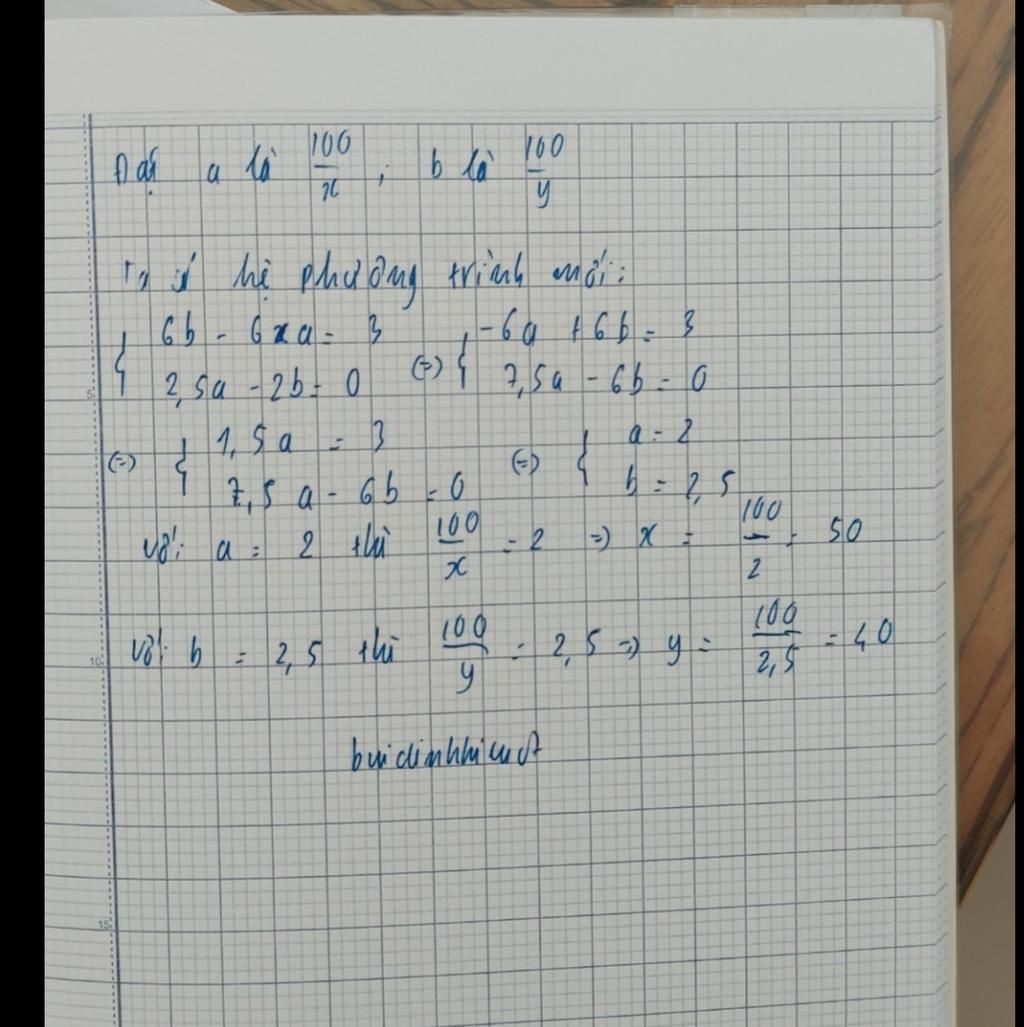 Đặt a là 100/x , b là 100/y
Ta có hệ phương trình mới:
{ 6b - 6xa = 3 { -6a + 6b = 3
{ 2,5a - 2b = 0 (=) { 7,5a - 6b = 0
(=) { 1,5a = 3 (=) { a = 2
{ 7,5a - 6b = 0 { b = 2,5
với a = 2 thì 100/x = 2 => x = 100/2 = 50
với b = 2,5 thì 100/y = 2,5 => y = 100/2,5 = 40
5
10
15